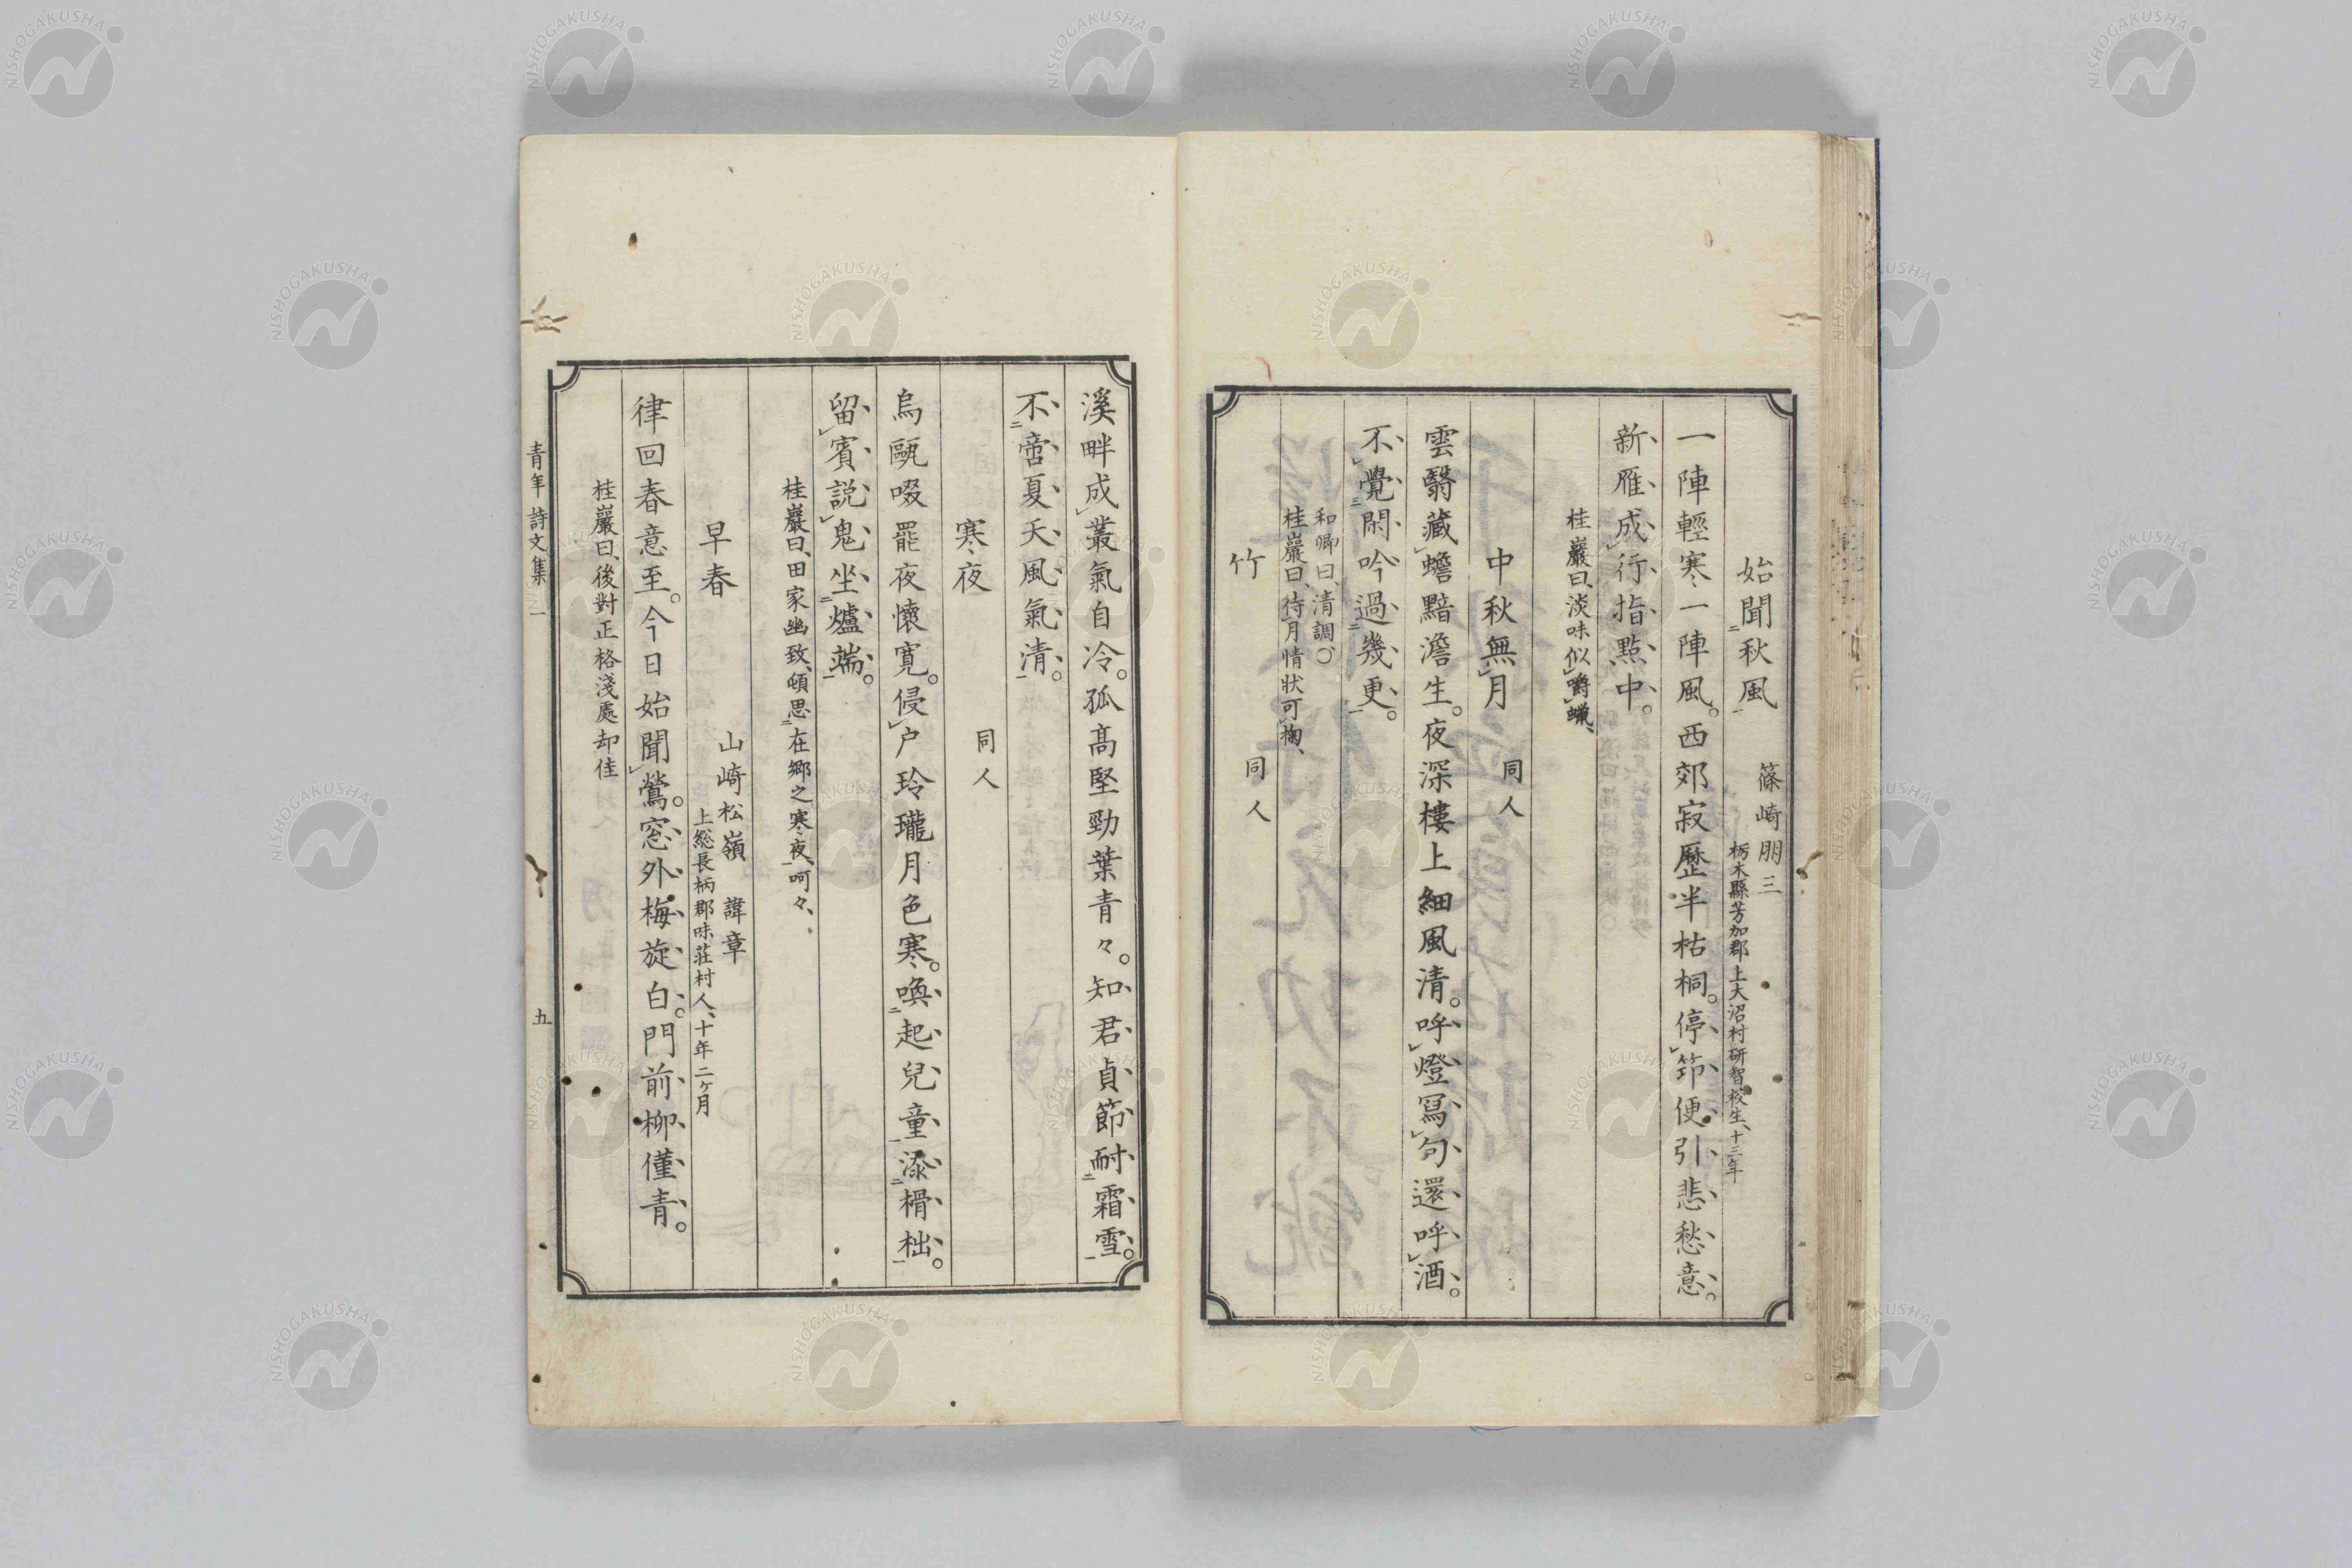 始聞二秋風一　篠崎朋三
栃木縣芳加郡上大沼村研智校生、十三年
一陣輕寒一陣風。西郊寂歷半枯桐。停レ筇便引悲愁意。
新雁成レ行指點中。
桂巖曰、淡味似レ嚼レ蠟、
中秋無レ月　同人
雲翳藏レ蟾黯澹生。夜深樓上細風清。呼レ燈冩レ句還呼レ酒。
不レ覺三閑吟過二幾更一。
和卿曰、清調〇
桂巖曰、待レ月情狀可レ掬、
竹　同人
溪畔成レ叢氣自冷。孤高堅勁葉青々。知君貞節耐二霜雪一。
不二啻夏天風氣清一。
寒夜　同人
烏甌啜罷夜懷寬。侵レ户玲瓏月色寒。喚二起兒童一添二榾柮一。
留レ賓説レ鬼坐二爐端一。
桂巖曰、田家幽致、頓思二在鄉之寒夜一、呵々、
早春　山崎松嶺　諱章
上総長柄郡味莊村人、十年二ヶ月
律回春意至。今日始聞レ鶯。窓外梅旋白。門前柳僅青。
桂巖曰、後對正格淺處却佳
青年詩文集一　五
NISHOGAKUSHA